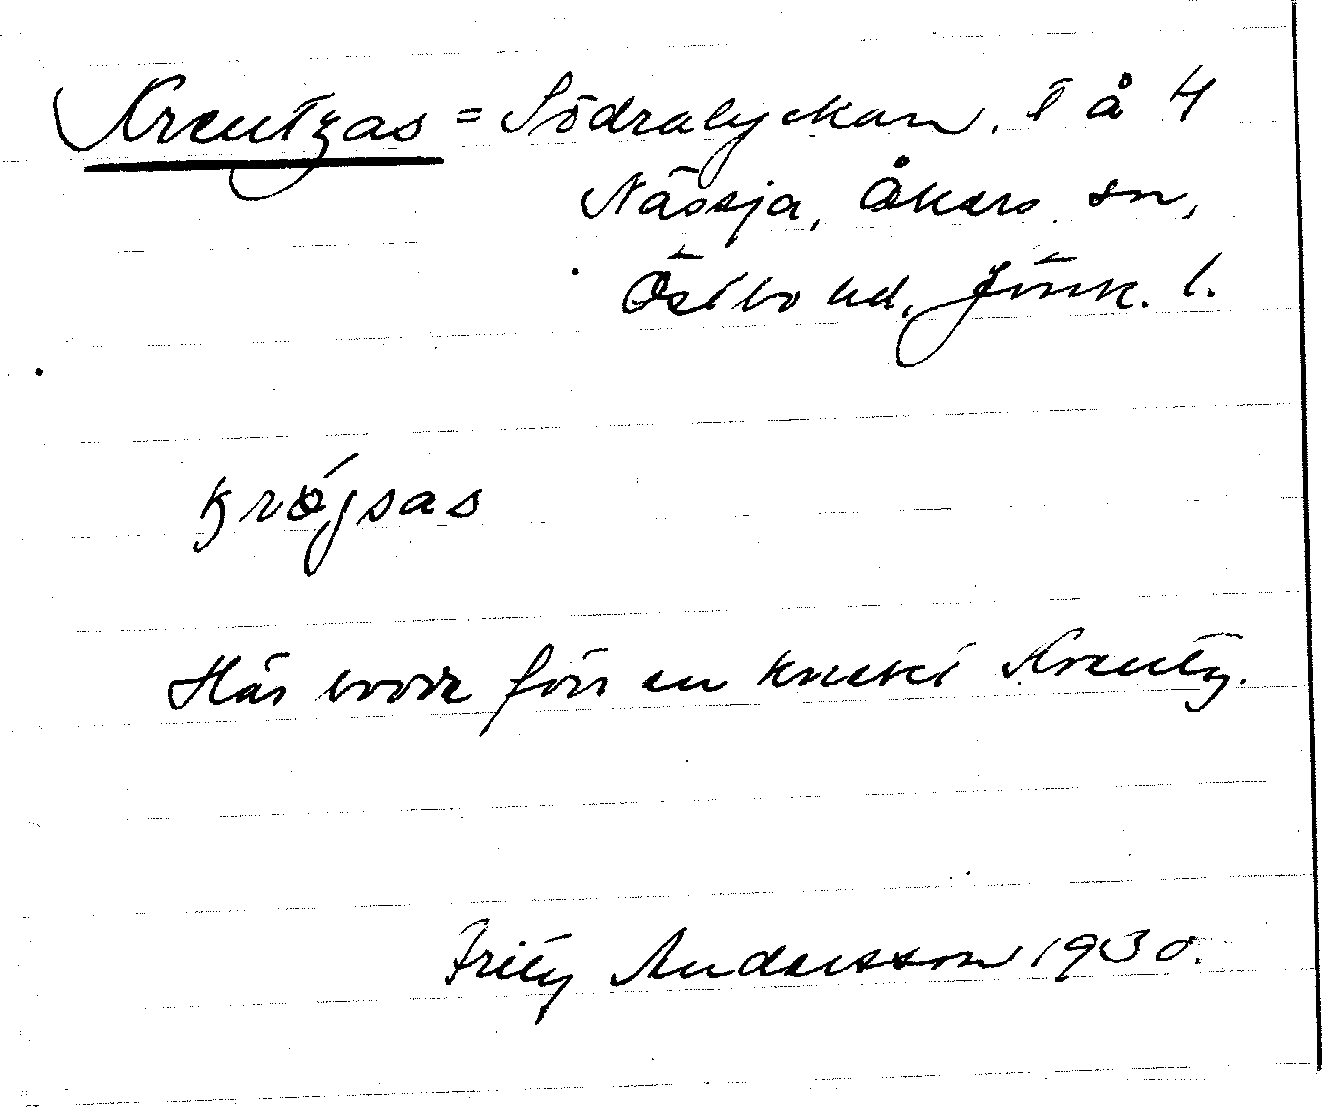 Kreutzas = Södralyckan, t å 4
Nässja, Åkers sn,
Östbo hd, Jönk. l.
krøjsas
Här bodde förr en knekt Kreutz.
Fritz Andersson 1930.